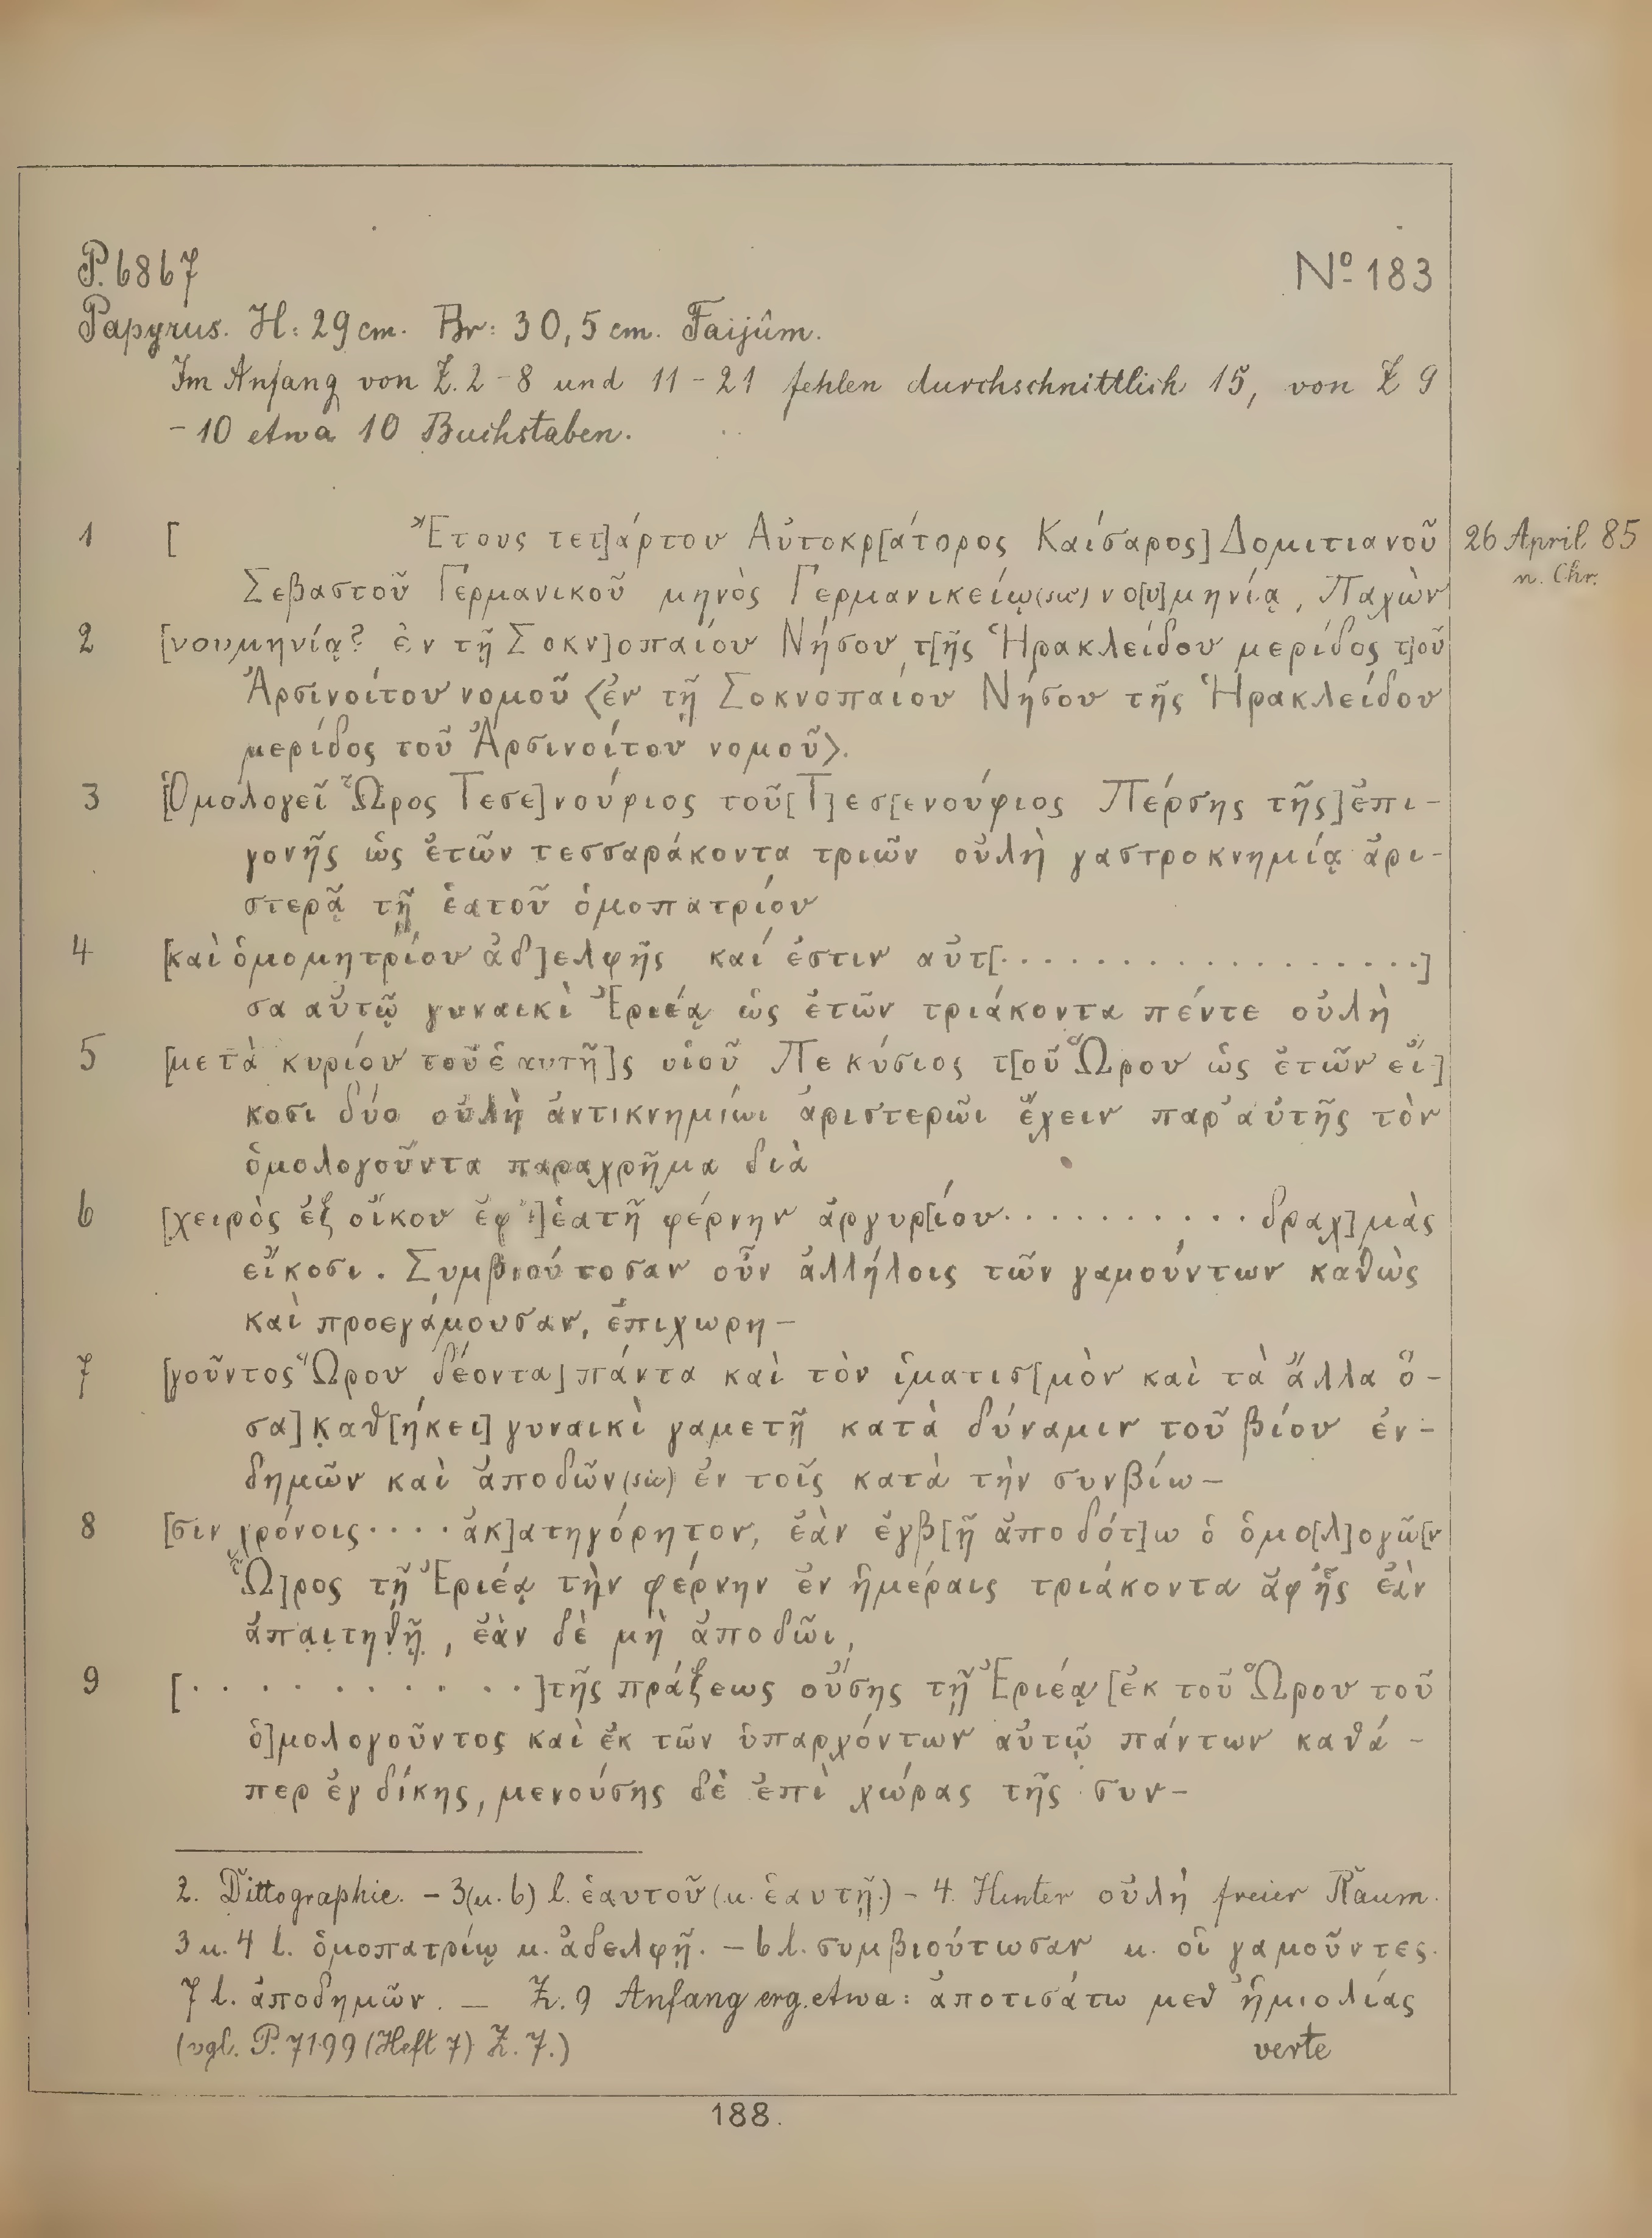 P. 6867
Nº 183
Papyrus. H: 29 cm. Br: 30,5 cm. Faijûm.
Im Anfang von Z. 2-8 und 11-21 fehlen durchschnittlich 15, von Z 9
-10 etwa 10 Buchstaben.
1 [ Ἔτους τετ]άρτου Αὐτοκρ[άτορος Καίσαρος] Δομιτιανοῦ
26 April 85
n. Chr.
Σεβαστοῦ Γερμανικοῦ μηνὸς Γερμανικείῳ (sic) νο[υ]μηνίᾳ, Παχὼν
2 [νουμηνίᾳ? ἐν τῇ Σοκν]οπαίου Νήσου τ[ῆς Ἡρακλείδου μερίδος τ]οῦ
Ἀρσινοίτου νομοῦ <ἐν τῇ Σοκνοπαίου Νήσου τῆς Ἡρακλείδου
μερίδος τοῦ Ἀρσινοίτου νομοῦ>.
3 [Ὁμολογεῖ Ὧρος Τεσε]νούφιος τοῦ [Τ]εσ[ενούφιος Πέρσης τῆς] ἐπι-
γονῆς ὡς ἐτῶν τεσσαράκοντα τριῶν οὐλὴ γαστροκνημίᾳ ἀρι-
στερᾷ τῇ ἑατοῦ ὁμοπατρίου
4 [καὶ ὁμομητρίου ἀδ]ελφῆς καί ἐστιν αὐτ[..................]
σα αὐτῷ γυναικὶ Ἐριέᾳ ὡς ἐτῶν τριάκοντα πέντε οὐλὴ
5 [μετὰ κυρίου τοῦ ἑαυτῆ]ς υἱοῦ Πεκύσιος τ[οῦ Ὧρου ὡς ἐτῶν εἴ-]
κοσι δύο οὐλὴ ἀντικνημίωι ἀριστερῶι ἔχειν παρ' αὐτῆς τὸν
ὁμολογοῦντα παραχρῆμα διὰ
6 [χειρὸς ἐξ οἴκου ἐφ' ] ἑατῇ φέρνην ἀργυρ[ίου........... δραχ]μὰς
εἴκοσι. Συμβιούτοσαν οὖν ἀλλήλοις τῶν γαμούντων καθὼς
καὶ προεγάμουσαν, ἐπιχωρη-
7 [γοῦντος Ὥρου δέοντα] πάντα καὶ τὸν ἱματισ[μὸν καὶ τὰ ἄλλα ὅ-
σα] καθ[ήκει] γυναικὶ γαμετῇ κατὰ δύναμιν τοῦ βίου ἐν-
δημῶν καὶ ἀποδῶν (sic) ἐν τοῖς κατὰ τὴν συνβίω-
8 [σιν χρόνοις.... ἀκ]ατηγόρητον, ἐὰν ἐγβ[ῇ ἀποδότ]ω ὁ ὁμο[λ]ογῶ[ν
Ὧ]ρος τῇ Ἐριέᾳ τὴν φέρνην ἐν ἡμέραις τριάκοντα ἀφ' ἧς ἐὰν
ἀπαιτηθῇ, ἐὰν δὲ μὴ ἀποδῶι,
9 [...........] τῆς πράξεως οὔσης τῇ Ἐριέᾳ [ἐκ τοῦ Ὥρου τοῦ
ὁ]μολογοῦντος καὶ ἐκ τῶν ὑπαρχόντων αὐτῷ πάντων καθά-
περ ἐγ δίκης, μενούσης δὲ ἐπὶ χώρας τῆς συν-
2. Dittographie. - 3 (u. 6) l. ἑαυτοῦ (u. ἑαυτῇ.) - 4. Hinter οὐλὴ freier Raum.
3 u. 4 l. ὁμοπατρίῳ u. ἀδελφῇ. - 6 l. συμβιούτωσαν u. οἱ γαμοῦντες.
7 l. ἀποδημῶν. - Z. 9 Anfang erg. etwa: ἀποτισάτω μεθ' ἡμιολίας
(vgl. P. 7199 (Heft 7) Z. 7.)
verte
188.